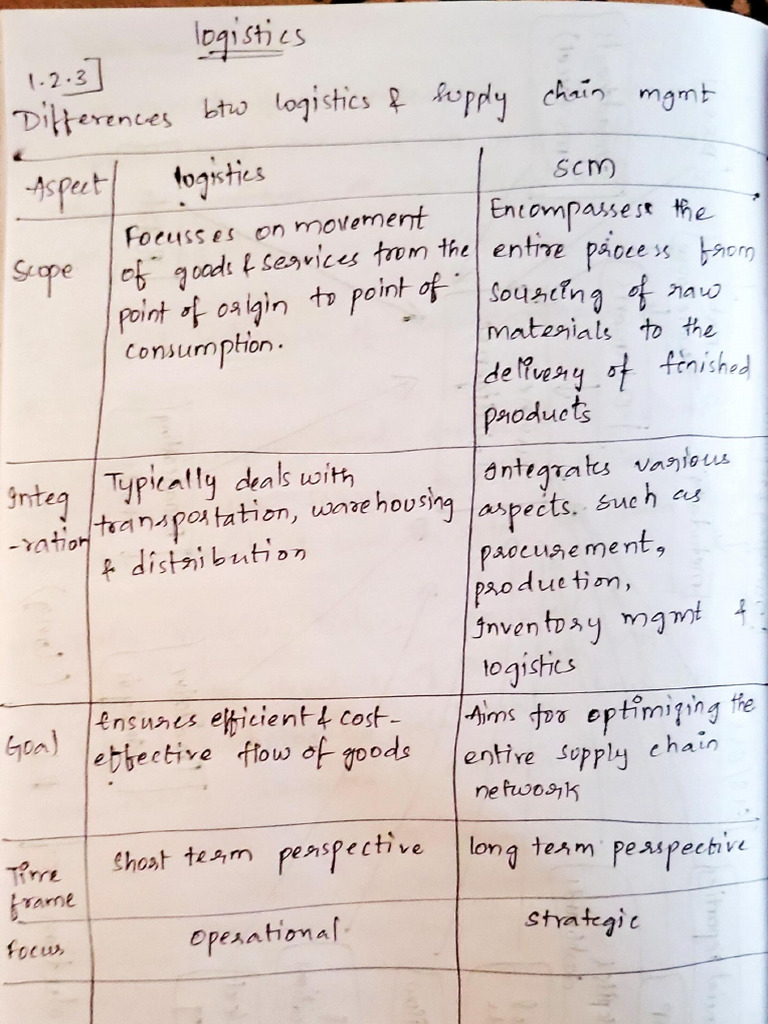 logistics
1.2.3]
Differences btw logistics & supply chain mgmt
Aspect
logistics
SCM
Scope
Focusses on movement
of goods & services from the
point of origin to point of
consumption.
Encompasses the
entire process from
sourcing of raw
materials to the
delivery of finished
products
Integ
-ration
Typically deals with
transportation, warehousing
& distribution
Integrates various
aspects. such as
procurement,
production,
Inventory mgmt &
logistics
Goal
Ensures efficient & cost-
effective flow of goods
Aims for optimizing the
entire supply chain
network
Time
frame
short term perspective
long term perspective
Focus
operational
strategic